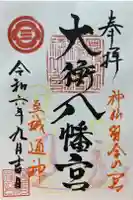 奉拝
神仙習合の宮
大衡八幡宮
至誠通神
令和六年九月吉日